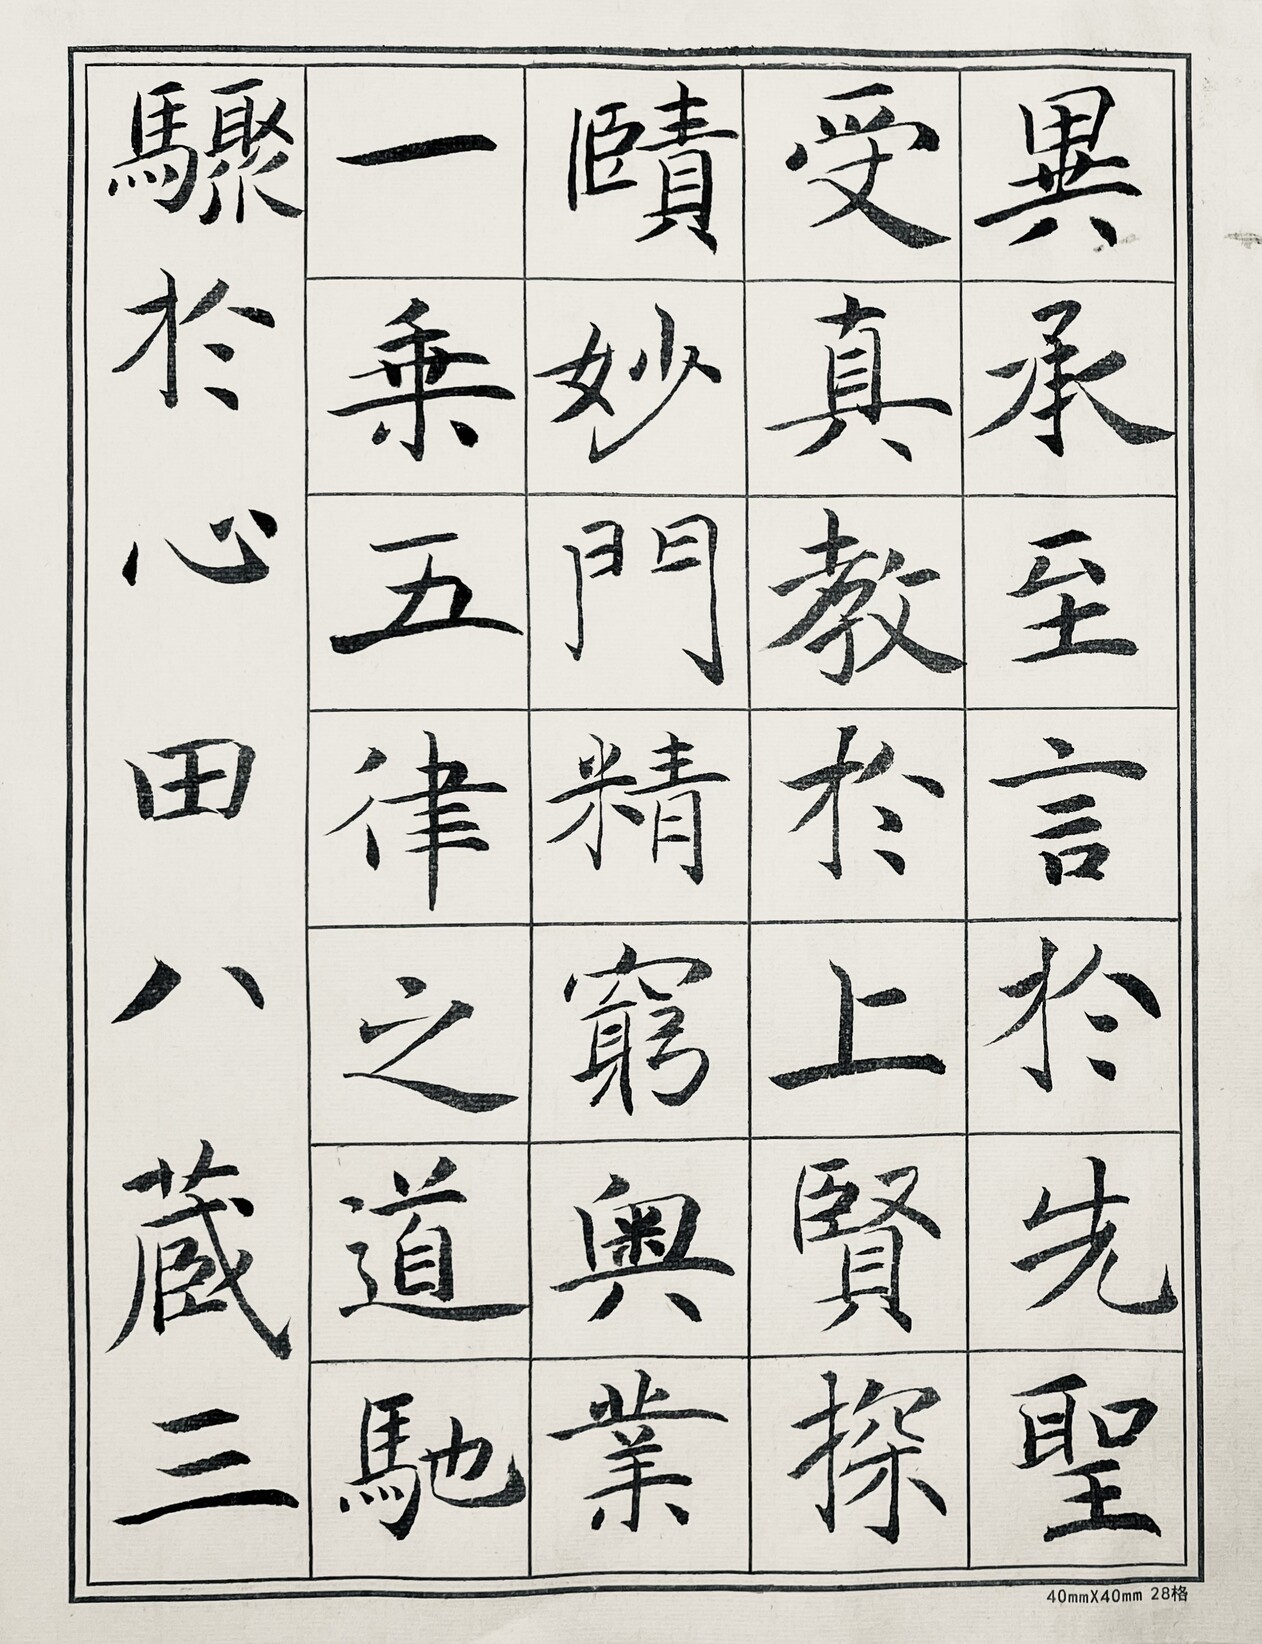 異承至言於先聖
受真教於上賢探
賾妙門精窮奥業
一乗五律之道馳
驟於心田八蔵三
40mmX40mm 28格